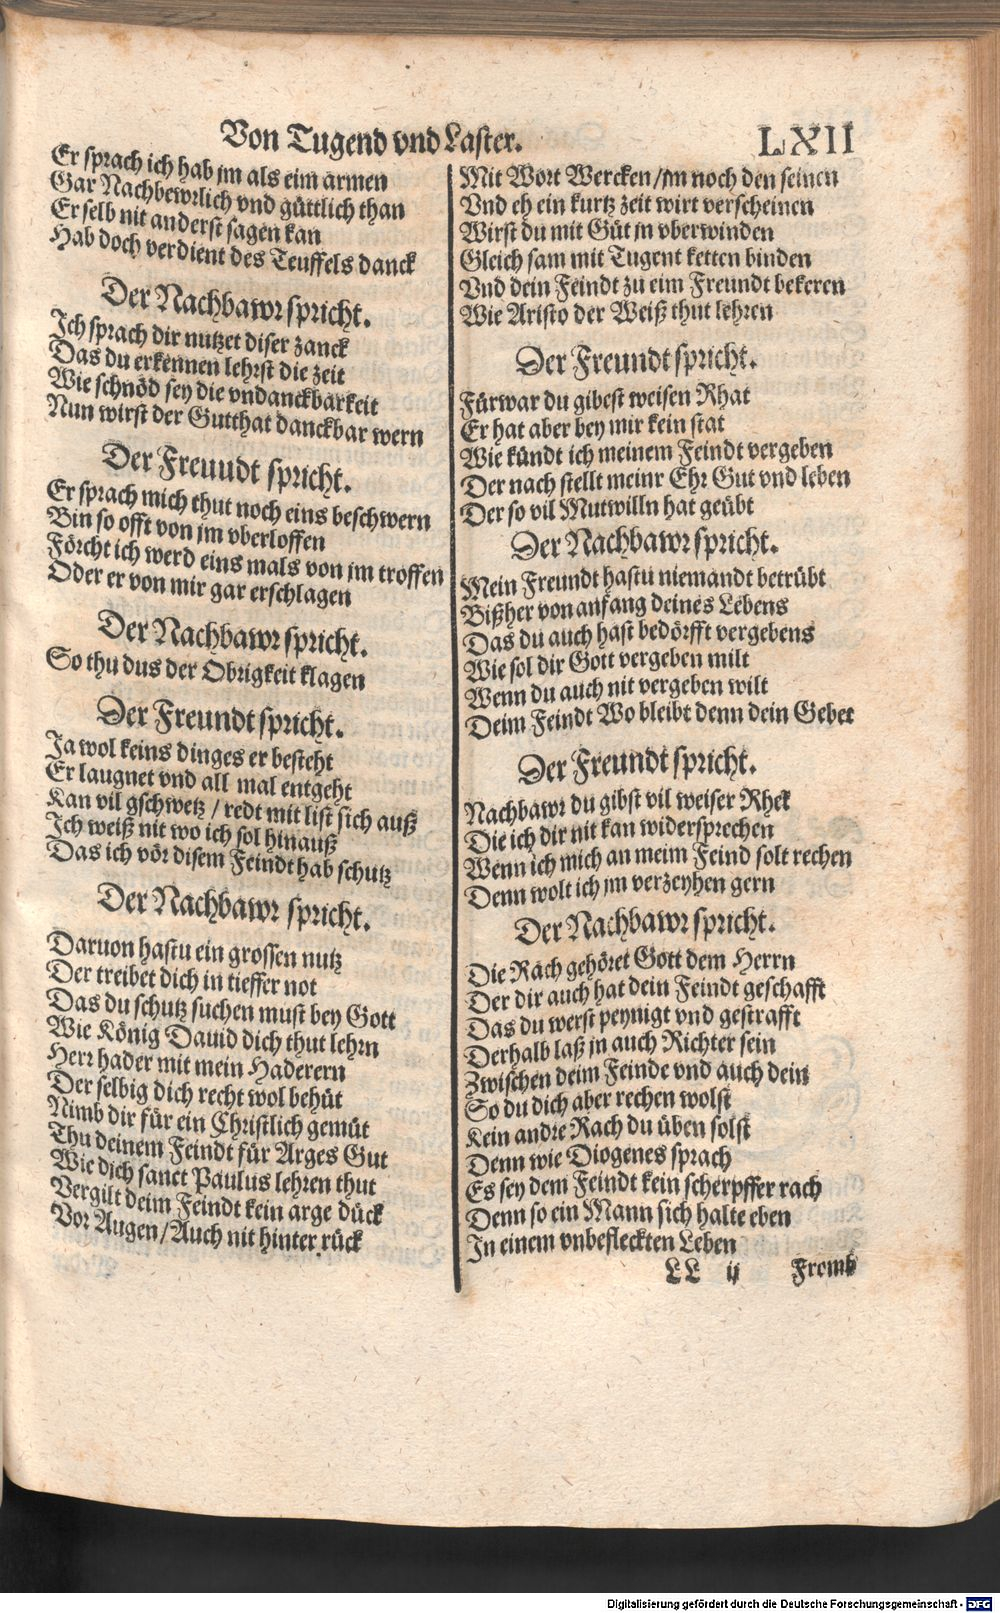 Von Tugend vnd Laster.
LXII
Er sprach ich hab jm als eim armen
Gar Nachbewrlich vnd güttlich than
Er selb nit anderst sagen kan
Hab doch verdient des Teuffels danck
Der Nachbawr spricht.
Ich sprach dir nutzet diser zanck
Das du erkennen lehrst die zeit
Wie schnöd sey die vndanckbarkeit
Nun wirst der Gutthat danckbar wern
Der Freuudt spricht.
Er sprach mich thut noch eins beschwern
Bin so offt von jm vberloffen
Förcht ich werd eins mals von jm troffen
Oder er von mir gar erschlagen
Der Nachbawr spricht.
So thu dus der Obrigkeit klagen
Der Freundt spricht.
Ja wol keins dinges er besteht
Er laugnet vnd all mal entgeht
Kan vil gschwetz / redt mit list sich auß
Ich weiß nit wo ich sol hinauß
Das ich vör disem Feindt hab schutz
Der Nachbawr spricht.
Daruon hastu ein grossen nutz
Der treibet dich in tieffer not
Das du schutz suchen must bey Gott
Wie König Dauid dich thut lehrn
Herr hader mit mein Haderern
Der selbig dich recht wol behüt
Nimb dir für ein Christlich gemüt
Thu deinem Feindt für Arges Gut
Wie dich sanct Paulus lehren thut
Vergilt deim Feindt kein arge dück
Vor Augen / Auch nit hinter rück
Mit Wort Wercken / jm noch den seinen
Vnd eh ein kurtz zeit wirt verscheinen
Wirst du mit Güt jn vberwinden
Gleich sam mit Tugent ketten binden
Vnd dein Feindt zu eim Freundt bekeren
Wie Aristo der Weiß thut lehren
Der Freundt spricht.
Fürwar du gibest weisen Rhat
Er hat aber bey mir kein stat
Wie kündt ich meinem Feindt vergeben
Der nach stellt meinr Ehr Gut vnd leben
Der so vil Mutwilln hat geübt
Der Nachbawr spricht.
Mein Freundt hastu niemandt betrübt
Bißher von anfang deines Lebens
Das du auch hast bedörfft vergebens
Wie sol dir Gott vergeben milt
Wenn du auch nit vergeben wilt
Deim Feindt Wo bleibt denn dein Gebet
Der Freundt spricht.
Nachbawr du gibst vil weiser Rhet
Die ich dir nit kan widersprechen
Wenn ich mich an meim Feind solt rechen
Denn wolt ich jm verzeyhen gern
Der Nachbawr spricht.
Die Rach gehöret Gott dem Herrn
Der dir auch hat dein Feindt geschafft
Das du werst peynigt vnd gestrafft
Derhalb laß jn auch Richter sein
Zwischen deim Feinde vnd auch dein
So du dich aber rechen wolst
Kein andre Rach du üben solst
Denn wie Diogenes sprach
Es sey dem Feindt kein scherpffer rach
Denn so ein Mann sich halte eben
In einem vnbefleckten Leben
LL ij Fromb
Digitalisierung gefördert durch die Deutsche Forschungsgemeinschaft - DFG